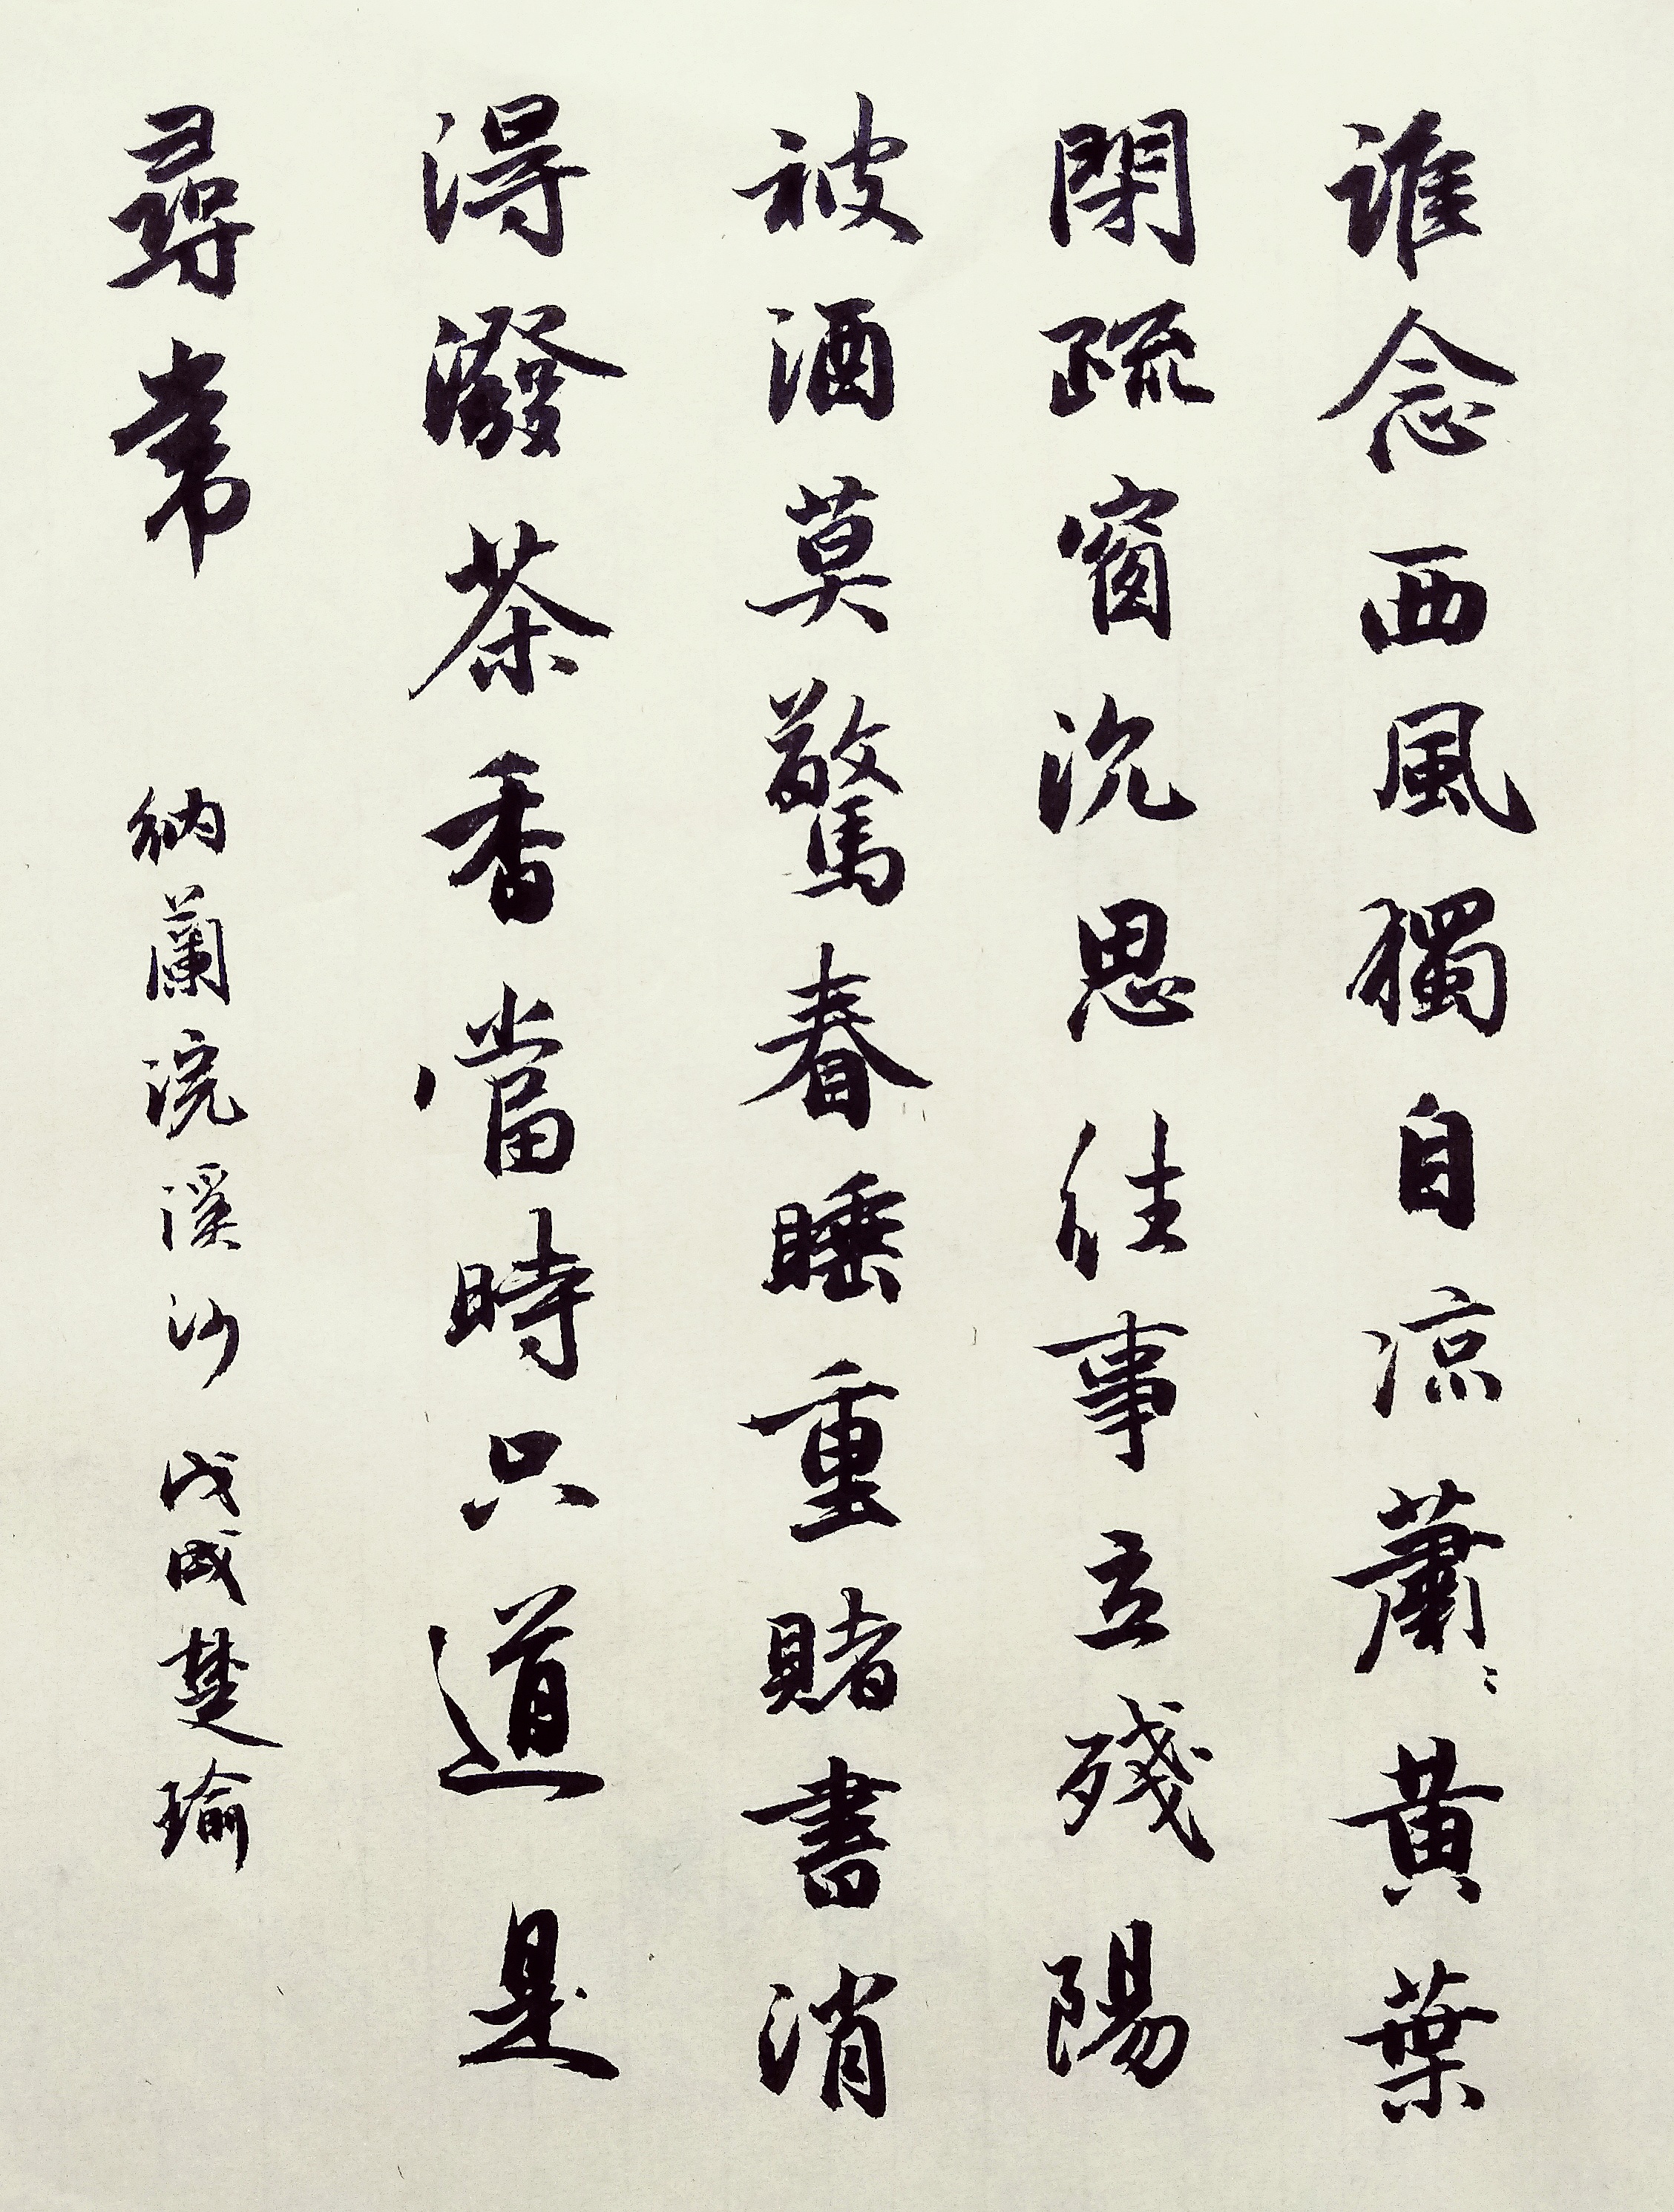 誰念西風獨自涼蕭〻黃葉
閉疏窗沉思往事立殘陽
被酒莫驚春睡重賭書消
得潑茶香當時只道是
尋常 納蘭浣溪沙 戊戌楚瑜